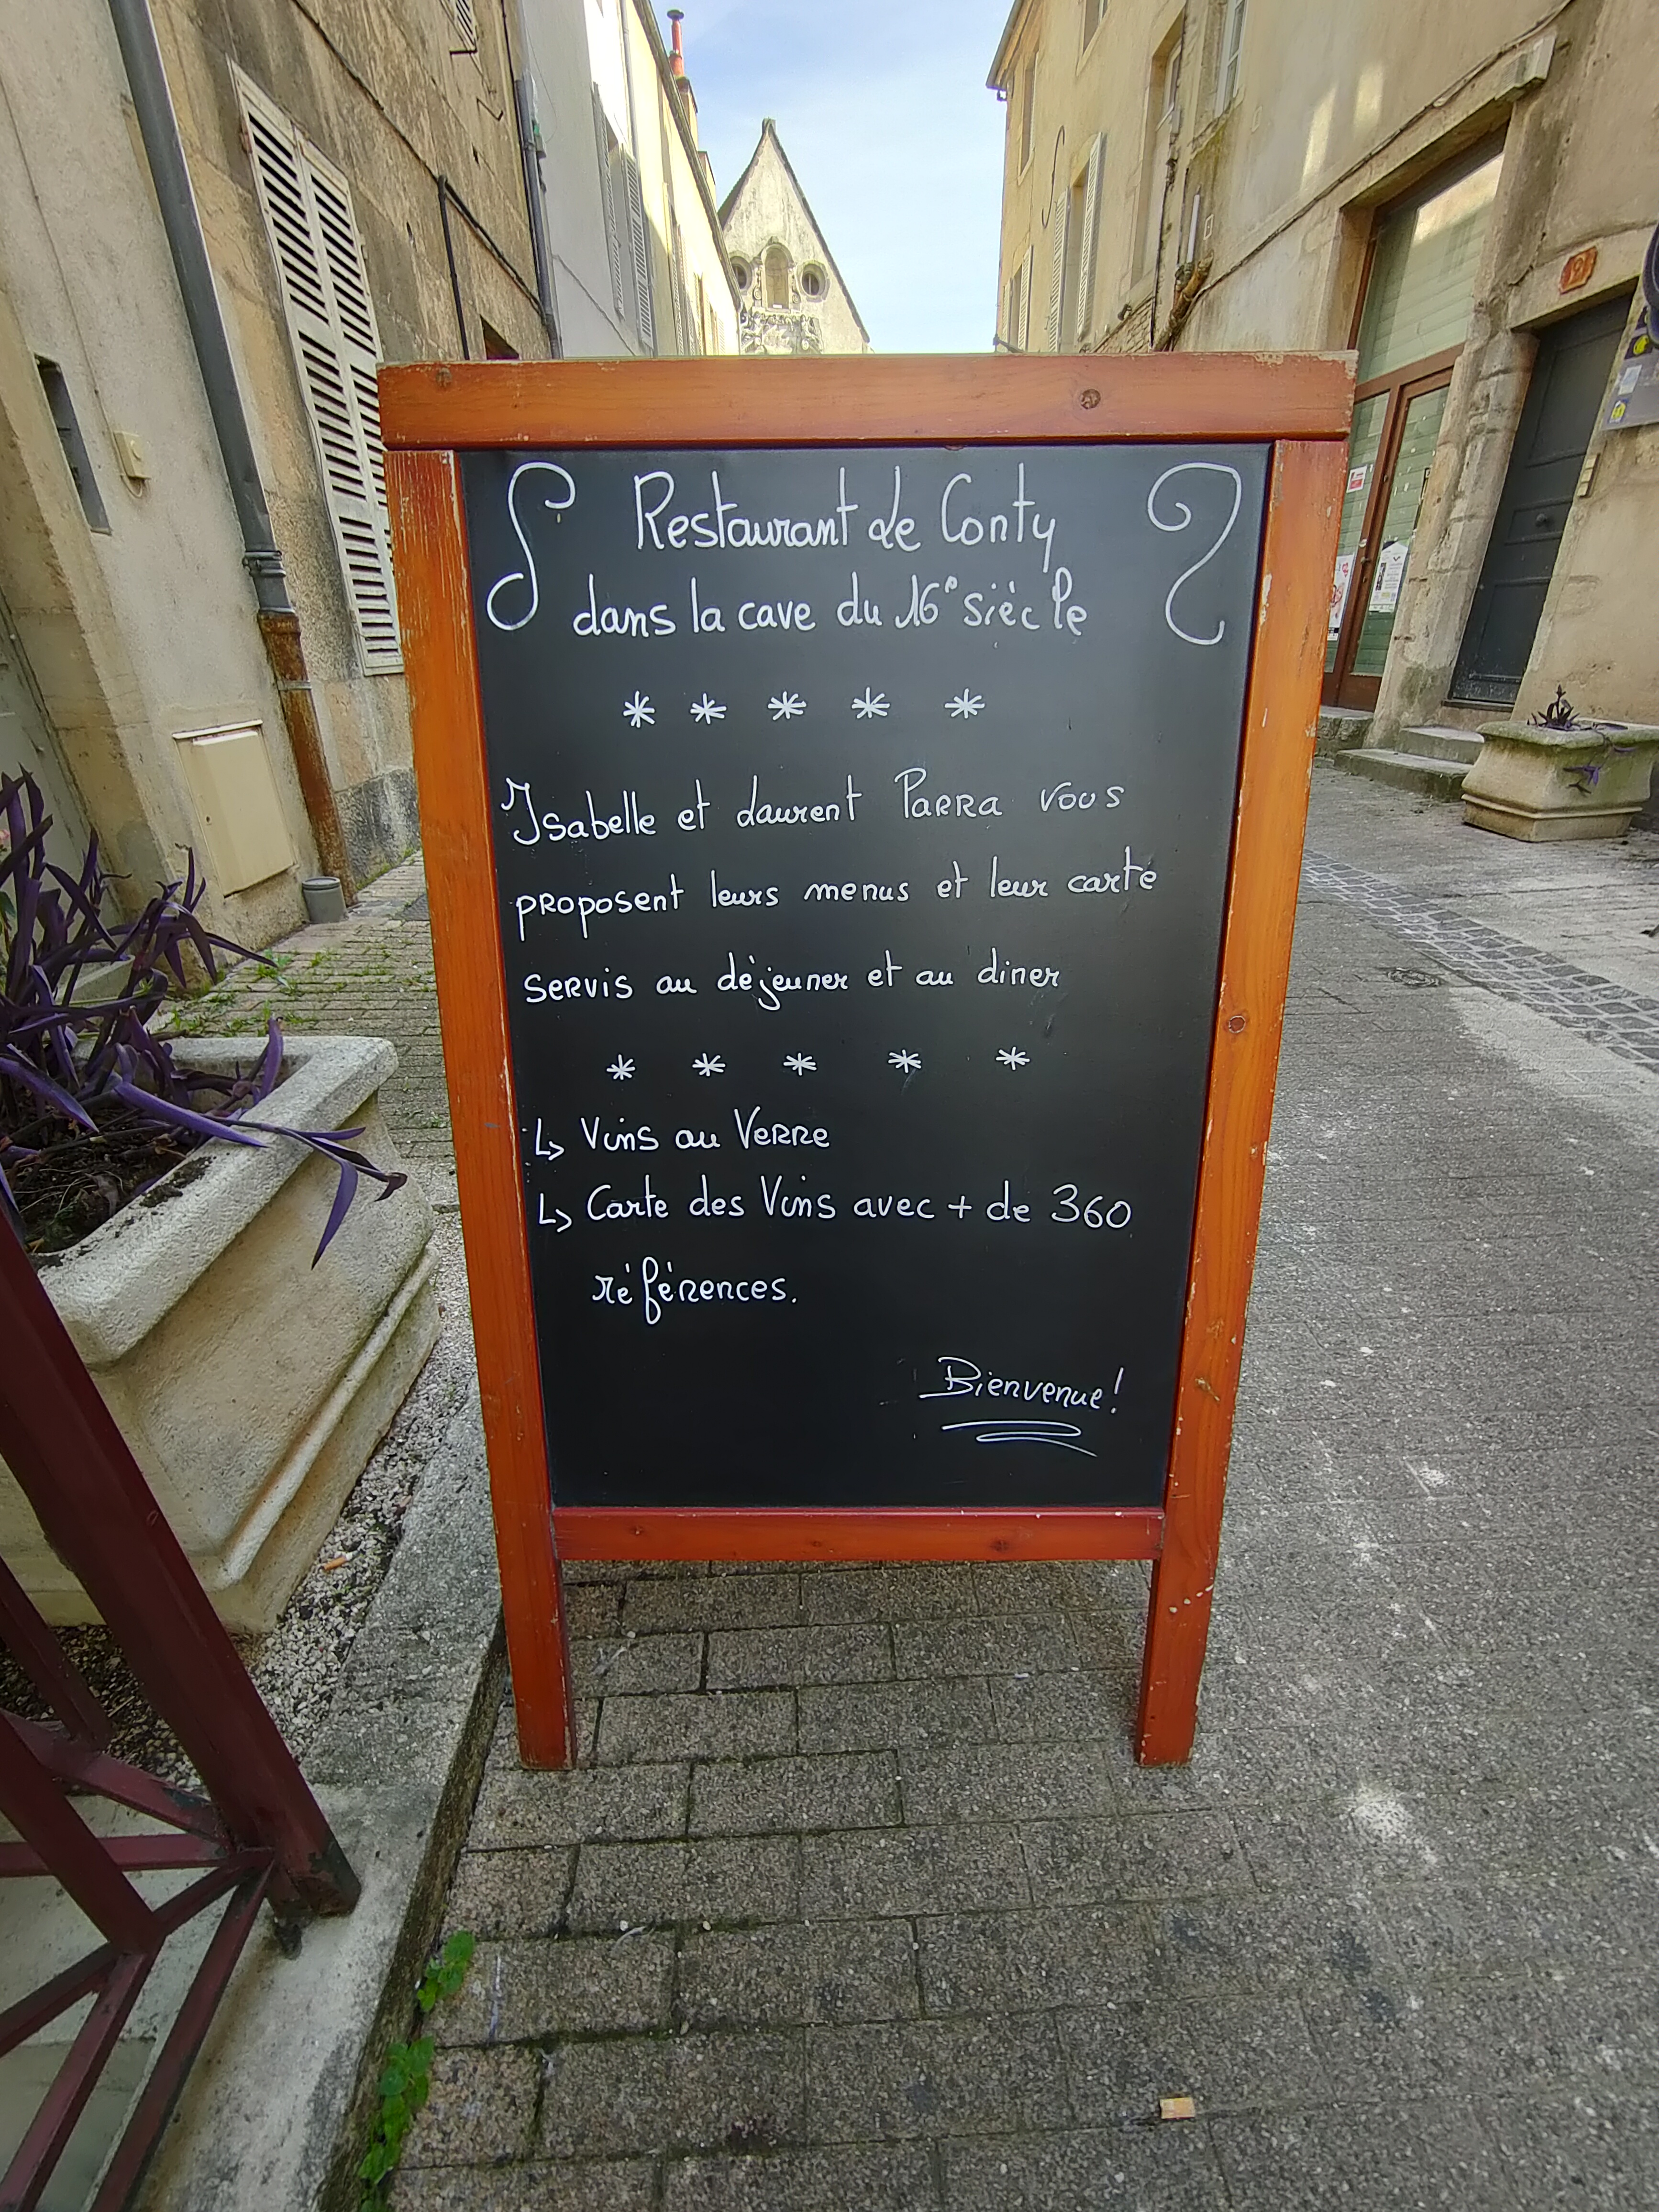 Restaurant de Conty
dans la cave du 16e siècle
* * * * *
Isabelle et Laurent PARRA vous
proposent leurs menus et leur carte
servis au déjeuner et au diner
* * * * *
↳ Vins au Verre
↳ Carte des Vins avec + de 360
références.
Bienvenue!